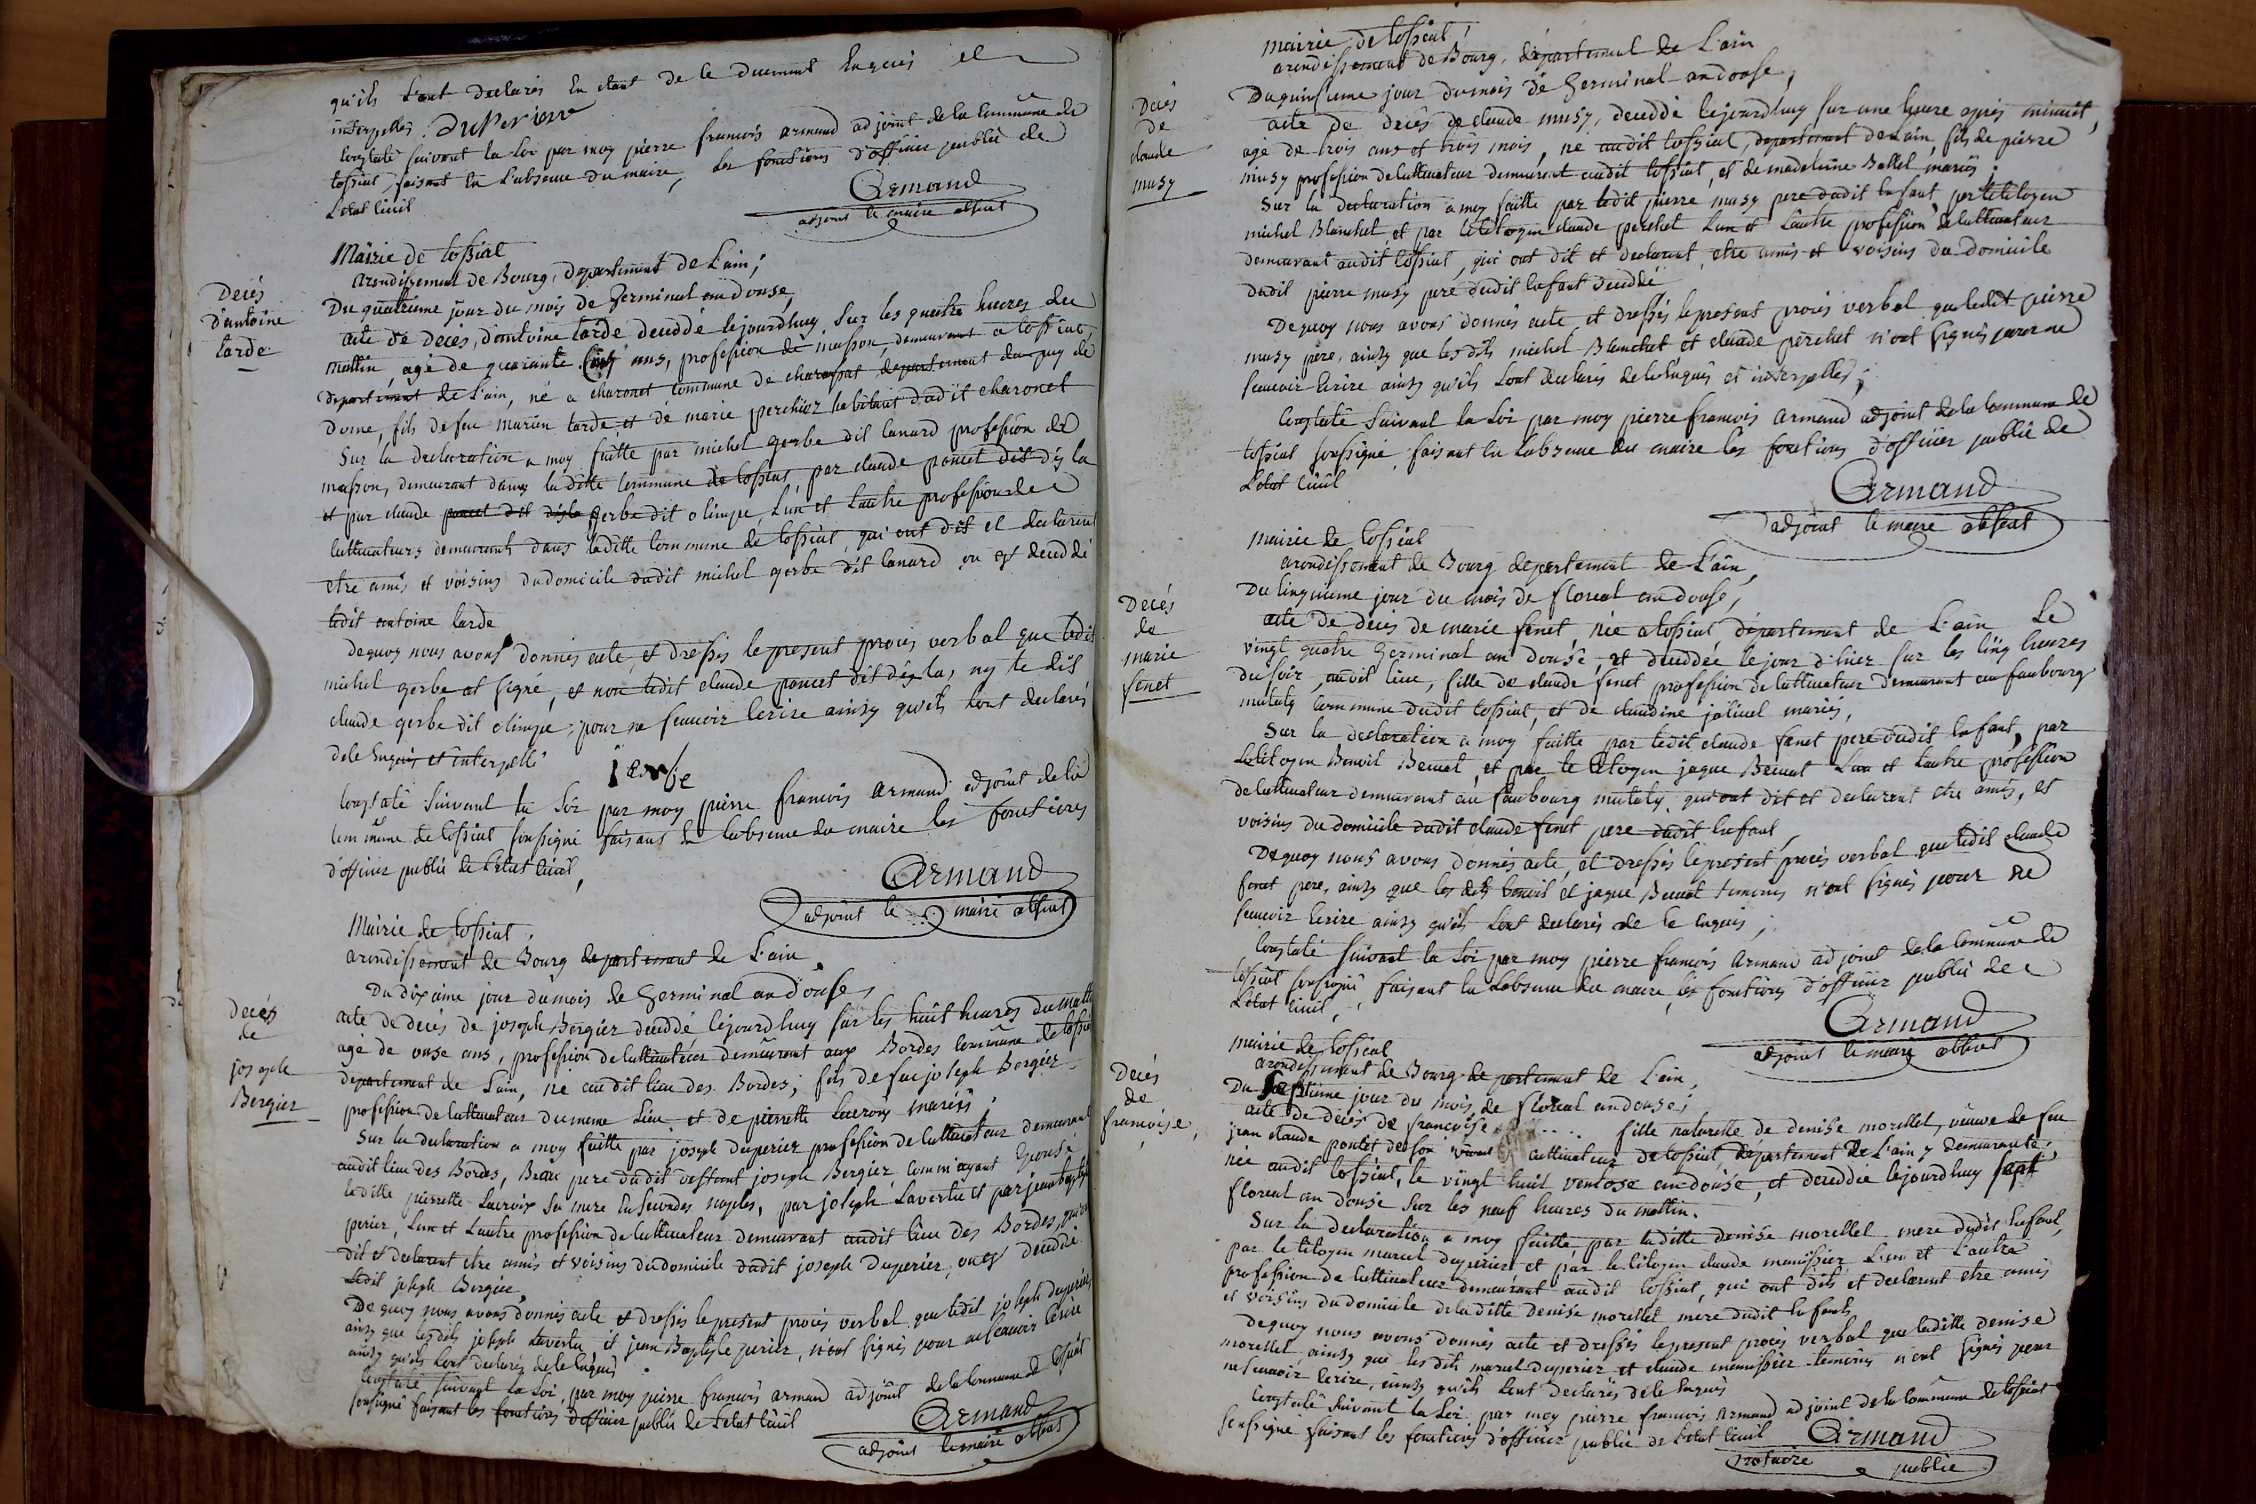 qu'ils l'ont declarés en étant de le duement enquis et
interpellés. duPerier
Constaté suivant la loi par moy pierre francois armand adjoint de la commune de
tossiat, faisant en l'absence du maire, les fonctions d'officier public de
L'etat Civil
Armand
adjoint le maire absent
Mairie de tossiat
arondissement de Bourg, departement de L'ain;
Decés
d'antoine
tarde
Du quatrieme jour du mois de Germinal an douse,
acte de decés, d'antoine tarde deceddé lejourdhuy sur les quatre heures du
mattin, agé de quarante cinq ans, profession de masson, demeurant a tossiat,
departement de L'ain, né a charonet commune de departement du puy de
dome, fils de feu marien tarde et de marie perchiez habitant dudit charonet
Sur la declaration a moy faitte par michel gerbe dit lanard profession de
masson, demeurant dans laditte commune de tossiat, par claude poncet dit déz la
et par claude poncet dit gerbe dit olimpe, L'un et L'autre profession de
cultivateurs demeurants dans laditte commune de tossiat, qui ont dit et declarent
etre amis et voisins dudomicile dudit michel gerbe dit lanard ou est deceddé
ledit antoine tarde
dequoy nous avons donnés acte, et dressés le present procés verbal que ledit
michel gerbe at signé, et non ledit claude poncet dit déz la, ny le dit
claude gerbe dit olimpe, pour ne scavoir ecrire ainsy qu'ils l'ont declarés
dele enquis et interpellé
Jerbe
Constaté suivant la loi par moy pierre francois armand adjoint de la
commune de tossiat soussigné faisant en l'absence du maire les fonctions
d'officier public de L'etat Civil,
Armand
adjoint le maire absent
Mairie de tossiat,
arondissement de Bourg departement de L'ain
Decés
de
joseph
Bergier
Du dixieme jour dumois de Germinal an douse,
acte de decés de joseph Bergier deceddé lejourdhuy sur les huit heures du mattin
age de onse ans, profession de cultivateur demeurant aux Bordes commune de tossiat
departement de L'ain, né audit lieu des Bordes, fils de feu joseph Bergier
profession de cultivateur dumeme Lieu et de pierrette Lacroix mariés.
Sur la declaration a moy faitte par joseph duperier profession de cultivateur demeurant
audit lieu des Bordes, Beau pere dudit deffunt joseph Bergier, comm'ayant Epousé
laditte pierrette Lacroix sa mere en secondes nopces, par joseph Lavertu et par jean baptiste
perier, L'un et L'autre profession de cultivateur demeurant audit lieu des Bordes, qui ont
dit et declarent etre amis et voisins dudomicile dudit joseph duperier, ou est deceddé
ledit joseph Bergier,
De quoy nous avons donnés acte et dressés le present procés verbal que ledit joseph duperier
ainsy que lesdits joseph Lavertu et jean Baptiste perier, n'ont signés pour ne scavoir ecrire
ainsy qu'ils l'ont declarés de le enquis
Constaté suivant la Loi, par moy pierre francois armand adjoint de la commune de tossiat
soussigné faisant les fonctions d'officier public de L'etat Civil
Armand
adjoint le maire absent
mairie de tossiat,
arondissement de Bourg, departement de L'ain
Decés
de
claude
musy
Du quinsieme jour dumois de Germinal an douse,
acte de decés de claude musy, deceddé lejourdhuy sur une heure apres minuit,
age de trois ans et trois mois, né audit tossiat, departement de L'ain, fils de pierre
musy profession de cultivateur demeurant audit tossiat, et de madeleine Ballet mariés.
Sur la declaration a moy faitte par ledit pierre musy pere dudit enfant, par le citoyen
michel Blanchet, et par le citoyen claude perchet L'un et L'autre profession de cultivateur
demeurant audit tossiat, qui ont dit et declarent etre amis et voisins du domicile
dudit pierre musy pere dudit enfant deceddé
De quoy nous avons donnés acte et dressés le present procés verbal que ledit pierre
musy pere, ainsy que lesdits michel Blanchet et claude perchet n'ont signés pour ne
scavoir Ecrire ainsy qu'ils l'ont declarés dele enquis et interpellés;
Constaté suivant la Loi par moy pierre francois armand adjoint de la commune de
tossiat soussigné, faisant en L'absence du maire les fonctions d'officier public de
L'etat Civil
Armand
adjoint le maire absent
Mairie de tossiat
arondissement de Bourg departement de L'ain,
Decés
de
marie
fenet
Du cinquieme jour du mois de floreal an douse,
acte de decés de marie fenet, née a tossiat departement de L'ain le
vingt quatre Germinal an douse, et deceddée le jour d'hier sur les cinq heures
du soir, audit lieu, fille de claude fenet profession de cultivateur demeurant au faubourg
mutaly commune dudit tossiat, et de claudine jolivet mariés,
Sur la declaration a moy faitte par ledit claude fenet pere dudit enfant, par
le citoyen Benoit Benuat, et par le citoyen jaque Benuat L'un et L'autre profession
de cultivateur demeurant au faubourg mutaly, qui ont dit et declarent etre amis, et
voisins du domicile dudit claude fenet pere dudit enfant,
De quoy nous avons donnés acte, et dressés le present procés verbal que ledit claude
fenet pere, ainsy que les dits benoit et jaque Benuat temoins n'ont signés pour ne
scavoir Ecrire ainsy qu'ils l'ont declarés de le enquis,
Constaté suivant la Loi par moy pierre francois armand adjoint de la commune de
tossiat soussigné faisant en L'absence du maire, les fonctions d'officier public de
L'etat Civil,
Armand
adjoint le maire absent
Mairie de tossiat
arondissement de Bourg departement de L'ain,
Decés
de
francoise,
Du septieme jour du mois de floreal an douse;
acte de decés de francoise ..... fille naturelle de denise morellet, veuve de feu
jean claude pontet de son vivant cultivateur de tossiat, departement de L'ain y demeurante,
née audit tossiat, le vingt huit ventose an douse, et deceddée lejourdhuy sept
floreal an douse sur les neuf heures du mattin.
Sur la declaration a moy faitte, par laditte denise morellet mere dudit enfant,
par le citoyen marcel duperier et par le citoyen claude manissier L'un et L'autre
profession de cultivateur demeurant audit tossiat, qui ont dits et declarent etre amis
et voisins du domicile de laditte denise morellet mere dudit enfant
dequoy nous avons donnés acte et dressés le present procés verbal que laditte denise
morellet ainsy que les dits marcel duperier et claude manissier temoins n'ont signés pour
ne scavoir Ecrire, ainsy qu'ils l'ont declarés dele enquis
Constaté suivant la Loi par moy pierre francois armand adjoint de la commune de tossiat
soussigné faisant les fonctions d'officier public de L'etat Civil
Armand
notaire public